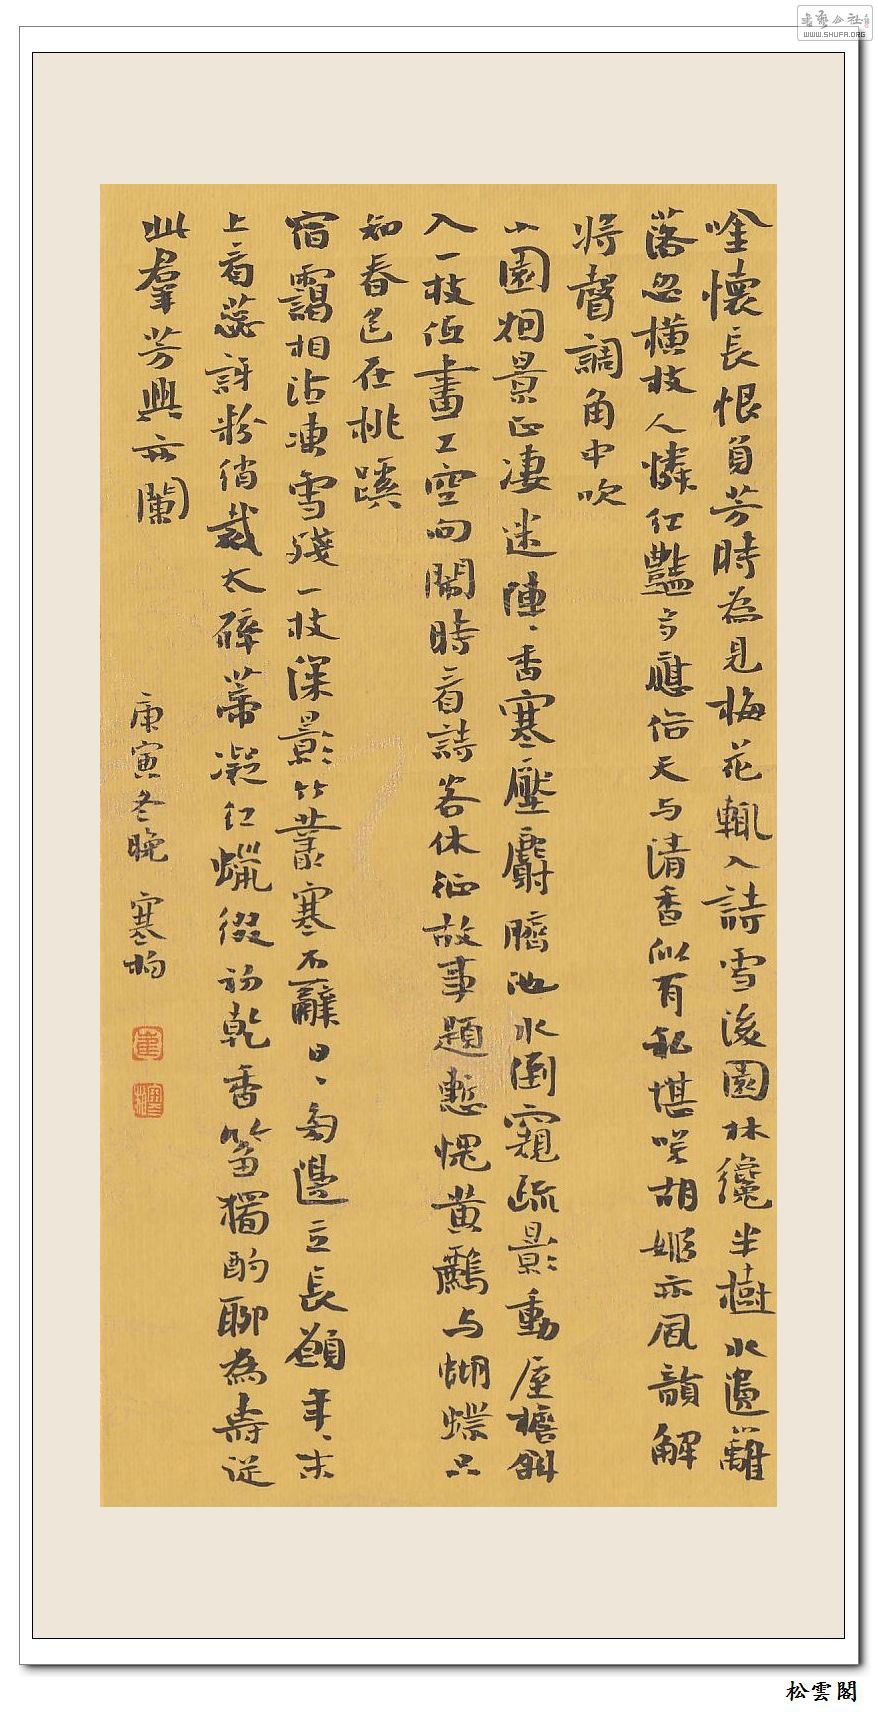 吟懷長恨負芳時為見梅花輒入詩雪後園林纔半樹水邊籬
落忽橫枝人憐紅豔多應俗天与清香似有私堪笑胡姬亦風韻解
將聲調角中吹
小園烟景正淒迷陣、香寒壓麝臍池水倒窺疏影動屋檐斜
入一枝低畫工空向閑時看詩客休徵故事題慙愧黃鸝与蝴蝶只
知春色在桃蹊
宿靄相沾凍雪殘一枝深影竹叢寒不辭日、旁邊立長願年、末
上看蕊訝粉綃裁太碎蒂凝紅蠟綴初乾香篘獨酌聊為壽從
此羣芳興亦闌
庚寅冬晚 寒
书艺公社
WWW.SHUFA.ORG
松雲閣